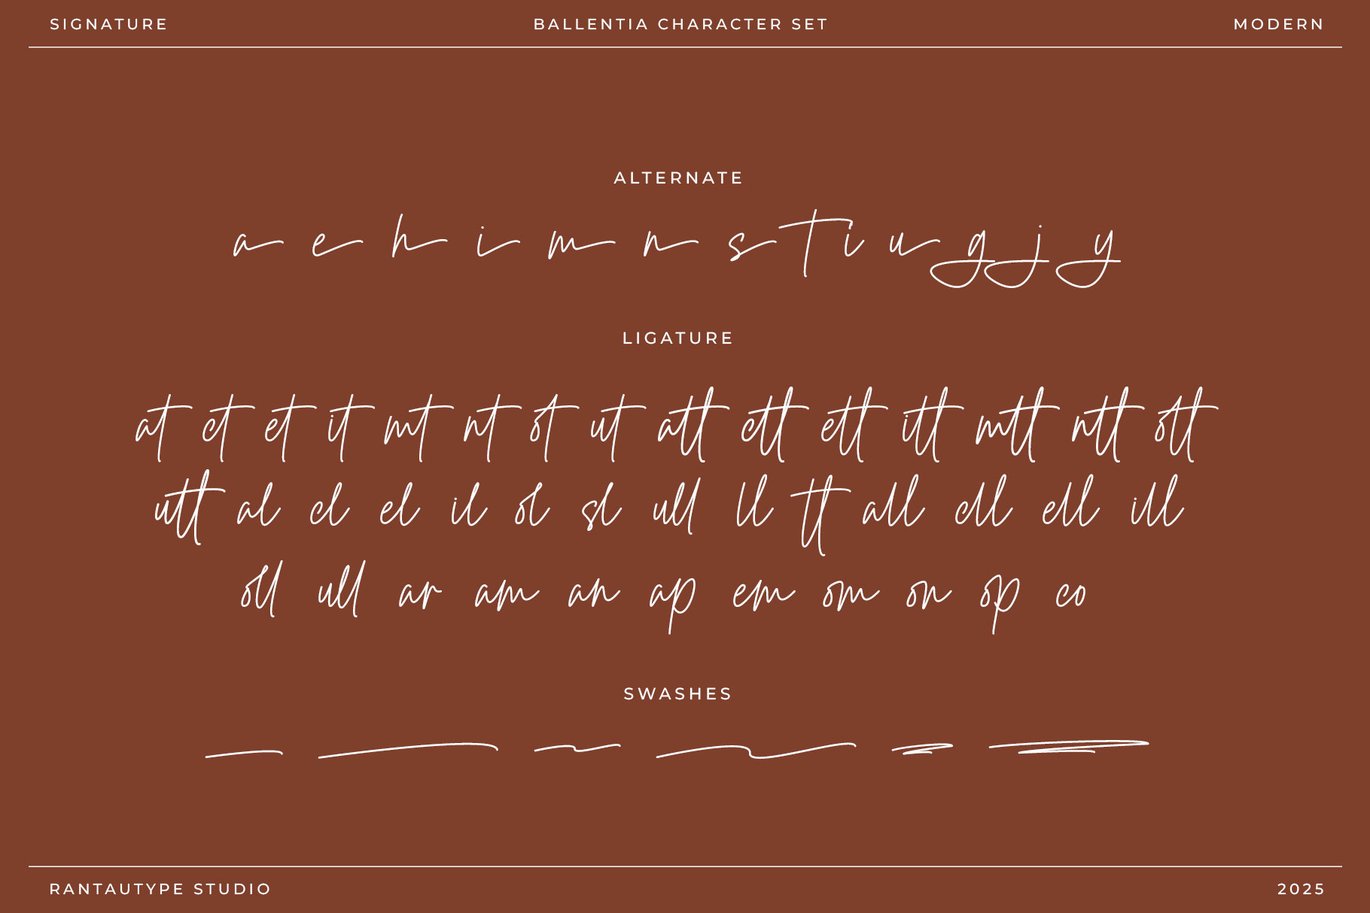 SIGNATURE BALLENTIA CHARACTER SET MODERN
ALTERNATE
a e h i m n s t i u g j y
LIGATURE
at ct et it mt nt ot ut att ctt ett itt mtt ntt ott
utt al cl el il ol sl ull ll tt all cll ell ill
oll ull ar am an ap em om on op co
SWASHES
RANTAUTYPE STUDIO 2025